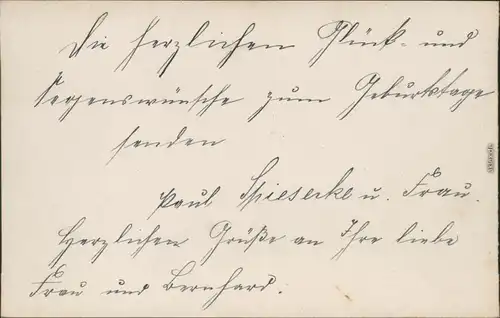 Die herzlichen Glück- und
Segenswünsche zum Geburtstage
senden
Paul Spieserke u. Frau.
Herzlichen Grüße an Ihre liebe
Frau und Bernhard.